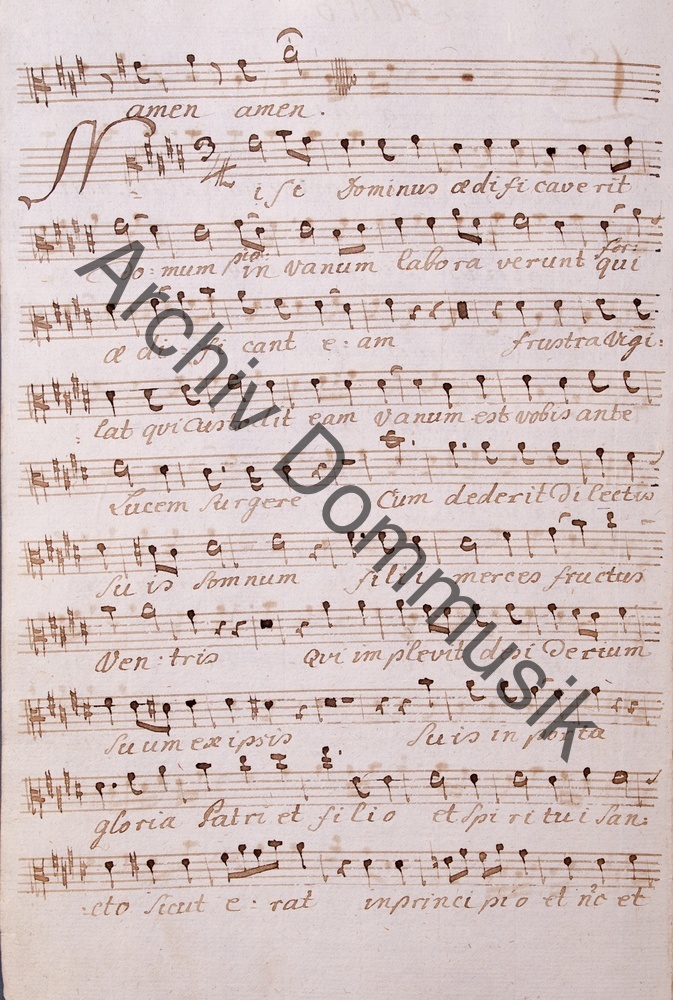 amen amen.
Nisi Dominus ædificaverit
Do: mum in vanum laboraverunt qui
pia: for:
ædificant e: am frustra Vigi:
lat qui Custodit eam Vanum est vobis ante
Lucem surgere Cum dederit Dilectis
Suis somnum filii merces fructus
Ven: tris Qui implevit desiderium
Suum ex ipsis Suis in porta
gloria Patri et filio et Spiritui San:
:cto Sicut e: rat in principio et nc et
Archiv Dommusik